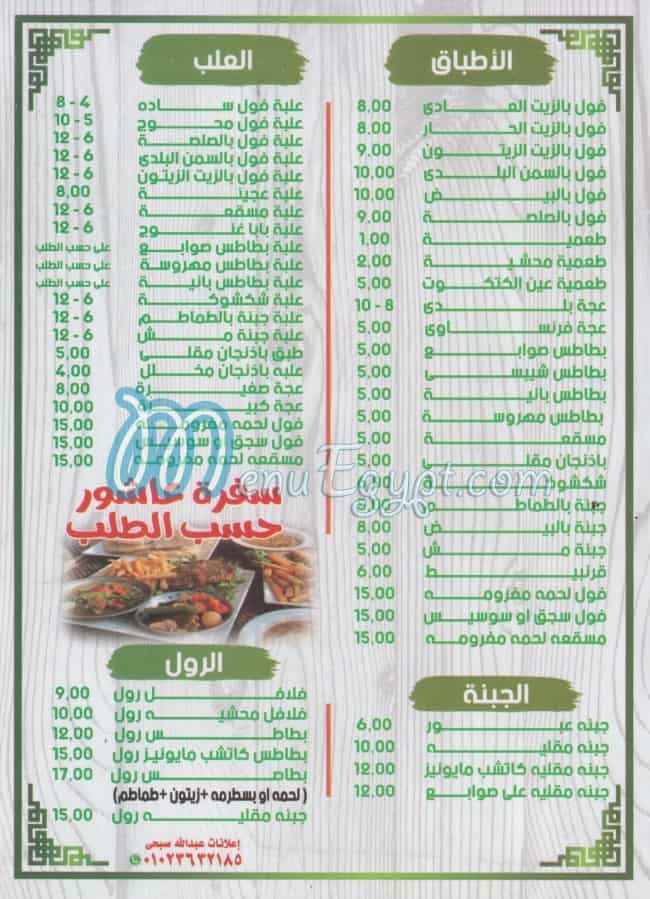 الأطباق
فول بالزيت العـــادى 8,00
فول بالزيت الحـــار 8,00
فول بالزيت الزيتـــون 9,00
فول بالسمن البلـــدى 10,00
فول بالبيـــض 10,00
فول بالصلصـــة 9,00
طعميـــة 1,00
طعمية محشيـــة 2,00
طعمية عين الكتكـــوت 5,00
عجة بلـــدى 8 - 10
عجة فرنســـاوى 5,00
بطاطس صوابـــع 5,00
بطاطس شيبســـى 5,00
بطاطس بانيـــة 5,00
بطاطس مهروســـة 5,00
مسقعـــة 5,00
باذنجان مقلـــى 5,00
شكشوكـــة
جبنة بالطماطـــم
جبنة بالبيـــض 8,00
جبنة مـــش 5,00
قرنبيـــط 6,00
فول لحمه مفرومـــه 15,00
فول سجق او سوسيـــس 15,00
مسقعه لحمه مفرومـــه 15,00
الجبنة
جبنه عبـــور 6,00
جبنه مقليـــه 10,00
جبنه مقليه كاتشب مايونيز 12,00
جبنه مقليه على صوابـــع 12,00
العلب
علبة فول ســـاده 4 - 8
علبة فول محـــوج 5 - 10
علبة فول بالصلصـــة 6 - 12
علبة فول بالسمن البلدى 6 - 12
علبة فول بالزيت الزيتون 6 - 12
علبة عجينـــة 8,00
علبة مسقعـــة 6 - 12
علبة بابا غنـــوج 6 - 12
علبة بطاطس صوابـــع على حسب الطلب
علبة بطاطس مهروسة على حسب الطلب
علبة بطاطس بانيـــة على حسب الطلب
علبة شكشوكـــة 6 - 12
علبة جبنة بالطماطـــم 6 - 12
علبة جبنة مـــش 6 - 12
طبق باذنجان مقلـــى 5,00
علبه باذنجان مخلـــل 4,00
عجة صغيـــرة 8,00
عجة كبيـــرة 10,00
فول لحمه مفرومـــه 15,00
فول سجق او سوسيـــس 15,00
مسقعه لحمه مفرومـــه 15,00
MenuEgypt.com
سفرة عاشور
حسب الطلب
الرول
فلافـــل رول 9,00
فلافل محشيـــه رول 10,00
بطاطـــس رول 12,00
بطاطس كاتشب مايونيز رول 15,00
بطاطـــس رول 17,00
( لحمه او بسطرمه + زيتون + طماطم )
جبنه مقليـــه رول 15,00
إعلانات عبدالله سبحى
٠١٠٢٣٦٣٢١٨٥